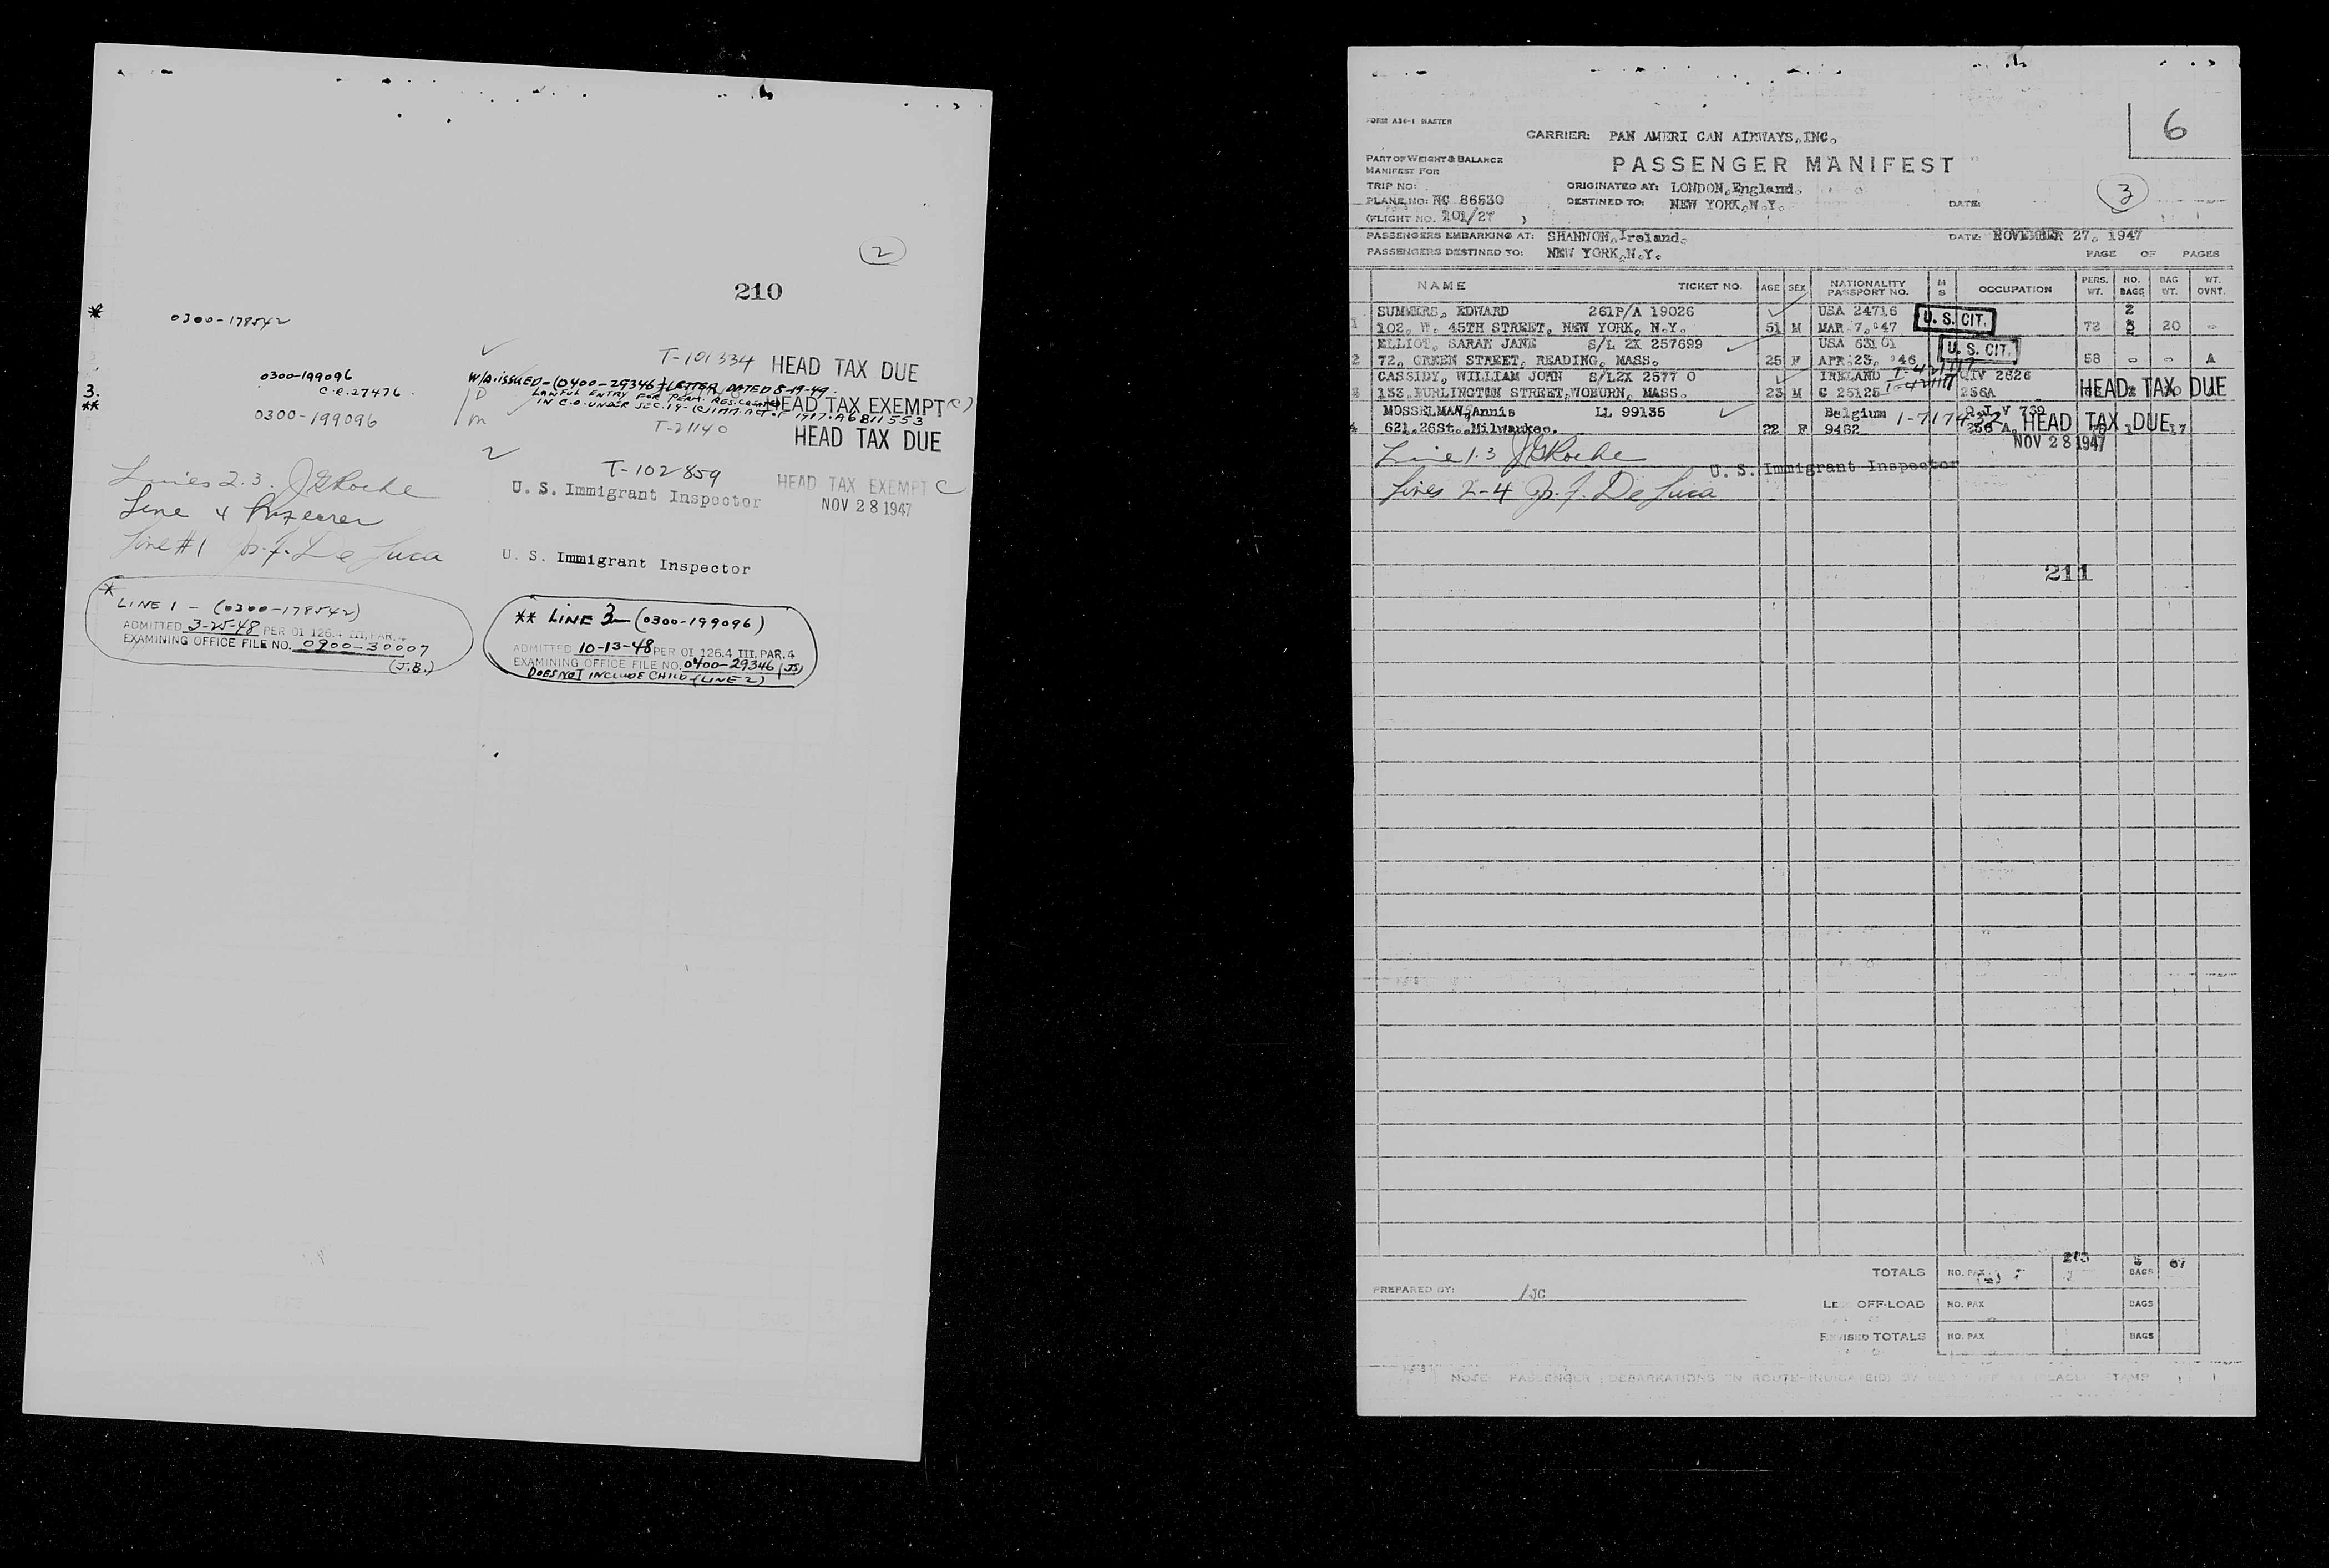 2
210
* 0300-178542
T-101334 HEAD TAX DUE
0300-199096
W/A ISSUED-(0400-29346) LETTER DATED 8-19-49.
3. C.R.27476.
LAWFUL ENTRY FOR PERM. RES. CREATED
HEAD TAX EXEMPT C)
IN C.O. UNDER SEC. 19-(C) IMM. ACT OF 1917. A6811553
** 0300-199096
T-21140
HEAD TAX DUE
T-102859
HEAD TAX EXEMPT C
U. S. Immigrant Inspector
NOV 28 1947
Lines 2.3. JGRoche
Line 4
Line #1 De Luca
U. S. Immigrant Inspector
*
LINE 1 - (0300-178542)
ADMITTED 3-25-48 PER OI 126.4 III, PAR. 4
EXAMINING OFFICE FILE NO. 0900-30007
(J.B.)
** LINE 3 (0300-199096)
ADMITTED 10-13-48 PER OI 126.4 III, PAR. 4
EXAMINING OFFICE FILE NO. 0400-29346 (JS)
DOES NOT INCLUDE CHILD (LINE 2)
6
FORM A36-1 MASTER
CARRIER: PAN AMERI CAN AIRWAYS,INC.
PART OF WEIGHT & BALANCE
MANIFEST FOR
PASSENGER MANIFEST
TRIP NO:
ORIGINATED AT: LONDON,England.
3
PLANE NO: NC 86530
DESTINED TO: NEW YORK,N.Y.
DATE:
(FLIGHT NO. 101/27 )
PASSENGERS EMBARKING AT: SHANNON,Ireland.
DATE: NOVEMBER 27, 1947
PASSENGERS DESTINED TO: NEW YORK,N.Y.
PAGE OF PAGES
NAME TICKET NO. AGE SEX NATIONALITY PASSPORT NO. M S OCCUPATION PERS. WT. NO. BAGS BAG WT. WT. OVNT.
SUMMERS, EDWARD 261P/A 19026 USA 24716 U. S. CIT. 2
1 102, W. 45TH STREET, NEW YORK, N.Y. 51 M MAR 7,'47 72 20 -
ELLIOT, SARAH JANE S/L 2X 257699 USA 63101 U. S. CIT.
2 72, GREEN STREET, READING, MASS. 25 F APR 23, '46 58 - - A
CASSIDY, WILLIAM JOHN S/L2X 2577 0 IRELAND T-42117 QIV 2626
3 133,BURLINGTON STREET,WOBURN, MASS. 23 M C 25125 T-42117 256A HEAD TAX DUE
MOSSELMAN,Annie LL 99135 Belgium Q I V 739
4 621.26St.,Milwaukee. 22 F 9482 256 A. HEAD TAX DUE 17
NOV 28 1947
Line 1.3 JGRoche
U. S. Immigrant Inspector
Lines 2-4 De Luca
211
TOTALS NO. PAX BAGS 67
PREPARED BY: /JC
OFF-LOAD NO. PAX BAGS
REVISED TOTALS NO. PAX BAGS
NOTE: PASSENGER DEBARKATIONS EN ROUTE INDICATE(D) BY STAMP